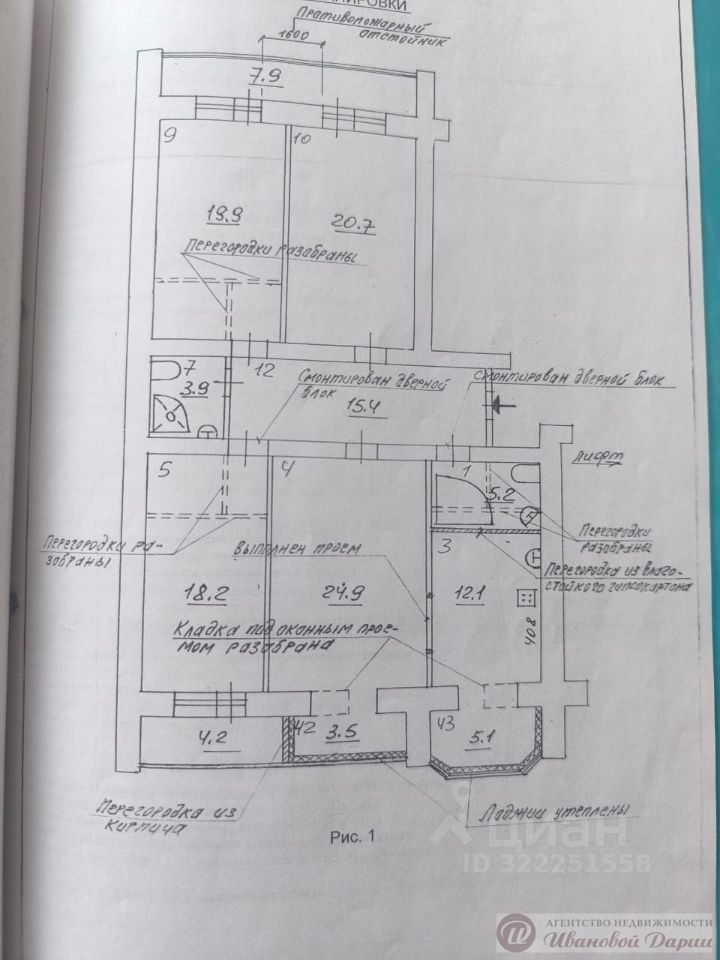 АНИРОВКИ
Противопожарный
отстойник
1600
7.9
9
10
19.9
20.7
Перегородки разобраны
7
3.9
12
Смонтирован дверной
блок
Смонтирован дверной блок
15.4
Лифт
5
4
1
5.2
Перегородки ра-
зобраны
Выполнен проем
3
Перегородки
разобраны
Перегородка из влаго-
стойкого гипсокартона
18.2
24.9
12.1
408
Кладка под оконным прое-
мом разобрана
4.2
42
3.5
43
5.1
Перегородка из
кирпича
Лоджии утеплены
Рис. 1
циан
ID 322251558
АГЕНТСТВО НЕДВИЖИМОСТИ
Ивановой Дарии